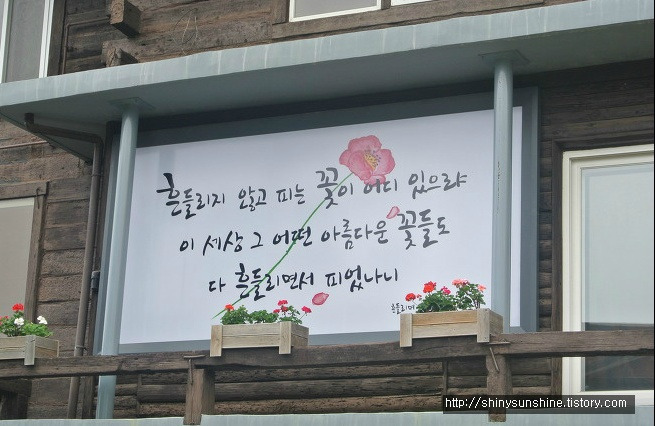 흔들리지 않고 피는 꽃이 어디 있으랴
이 세상 그 어떤 아름다운 꽃들도
다 흔들리면서 피었나니
http://shinysunshine.tistory.com